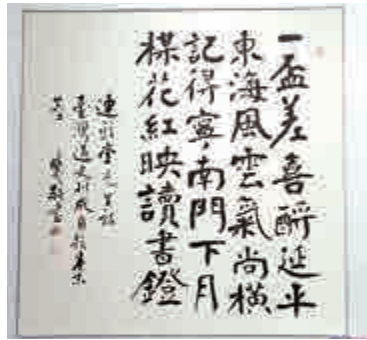 一盃差喜酹延平
東海風雲氣尚橫
記得寧南門下月
楳花紅映讀書鐙
連雅堂先生詩
臺灣通史刊成自題卷末